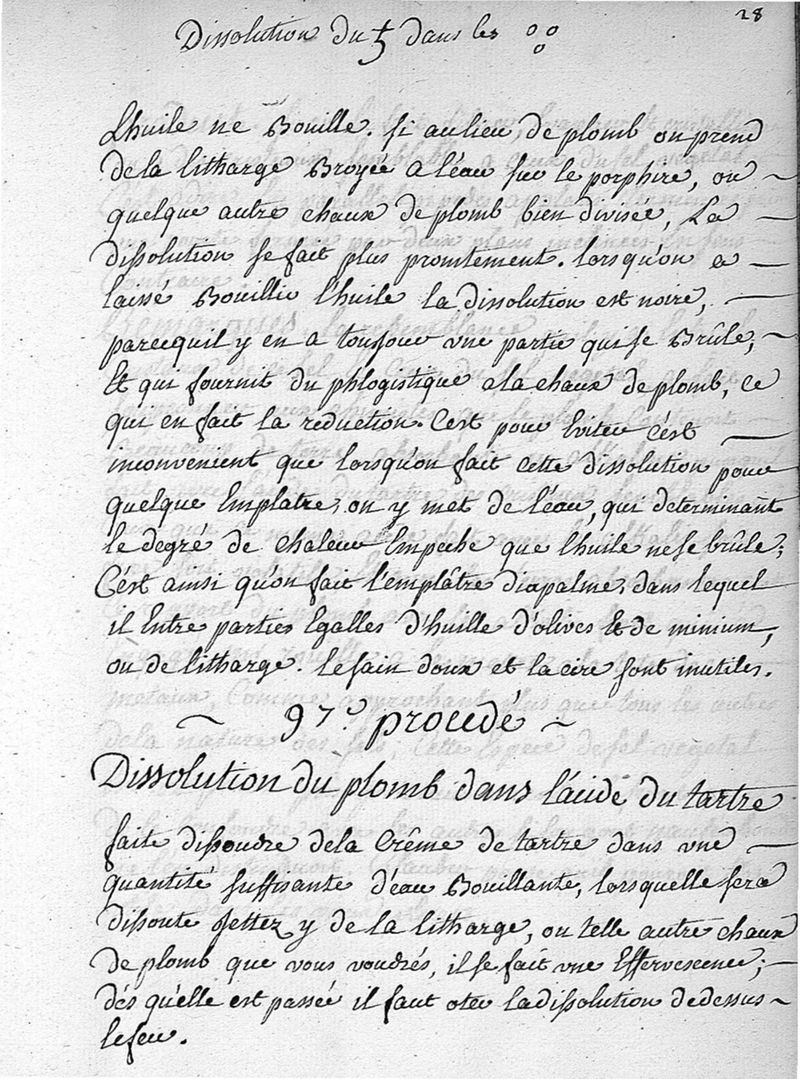 28
Dissolution du ♄ dans les
L'huile ne Bouille. si aulieu, de plomb on prend
dela litharge Broyée a l'éau sur le porphire, ou
quelque autre chaux de plomb bien divisée, La
dissolution se fait plus promtement. lorsqu'on a
laissé Bouillir l'huile la dissolution est noire,
parcequil y en a toujour une partie qui se Brûle;
Et qui fournit du phlogistique a la chaux de plomb, ce
qui en fait la reduction. C'est pour Eviter C'ést
inconvenient que lorsqu'on fait cette dissolution pour
quelque Emplatre, on y met de l'éau, qui determinant
le degré de chaleur Empeche que l'huile ne se brûle;
C'ést ainsi qu'on fait l'emplâtre diapalme, dans lequel
il Entre parties Egalles d'huille d'olives Et de minium,
ou de litharge. le sain doux et la cire sont inutiles.
~ 97.e procedé ~
Dissolution du plomb dans l'acide du tartre
faite dissoudre dela Crême de tartre dans une
quantité suffisante d'éau Bouillante, lorsquelle sera
dissoute Jettez y de la litharge, ou telle autre chaux
de plomb que vous voudrés, il se fait une Effervescence;
dés qu'elle est passée il faut oter la dissolution dedessus
le feu.